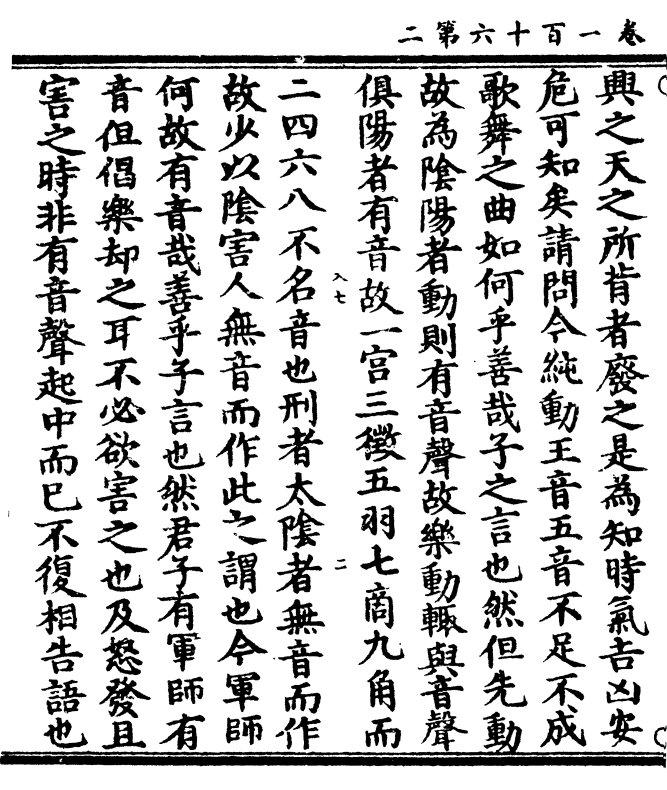 卷一百十六第二
興之天之所肯者廢之是為知時氣吉凶安
危可知矣請問今純動王音五音不足不成
歌舞之曲如何乎善哉子之言也然但先動
故為陰陽者動則有音聲故樂動輒與音聲
俱陽者有音故一宮三徵五羽七商九角而
入七
二
二四六八不名音也刑者太陰者無音而作
故少以陰害人無音而作此之謂也今軍師
何故有音哉善乎子言也然君子有軍師有
音但倡樂却之耳不必欲害之也及怒發且
害之時非有音聲起中而已不復相告語也